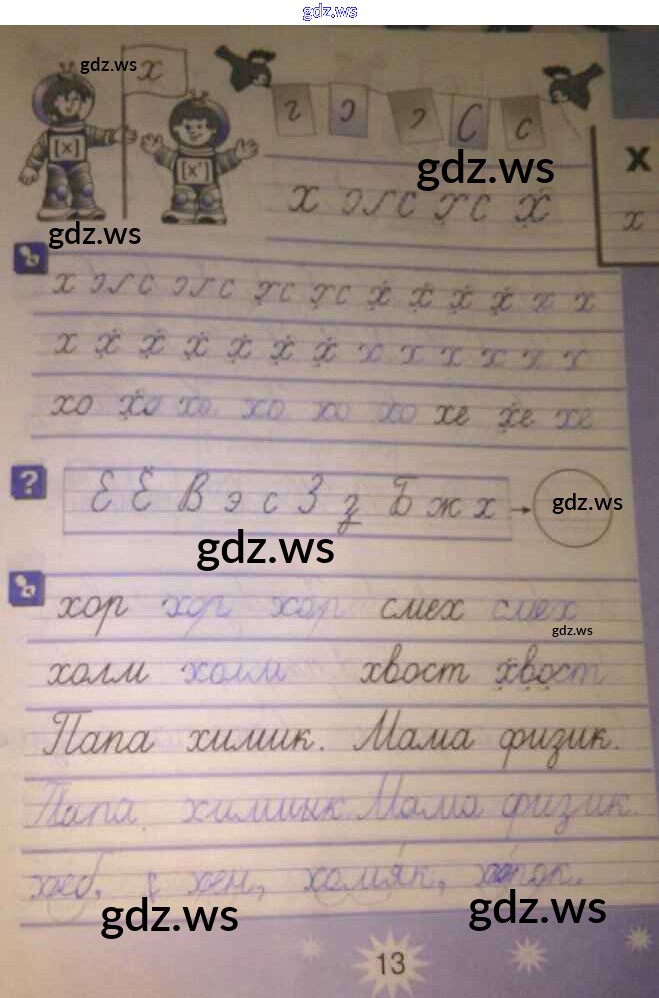 gdz.ws
gdz.ws
х
[х]
[х']
г э э С с
gdz.ws
Х
х
х эlс хс х
gdz.ws
х эlс эlс хс хс х х х х х х
х х х х х х х х х х х х х
хо хо хо хо хо хо хе хе хе
?
Е Ё В э с З з Б ж х
gdz.ws
gdz.ws
хор хор хор смех смех
gdz.ws
холм холм хвост хвост
Папа химик. Мама физик.
Папа химиык. Мама физик.
хомяк,
gdz.ws
gdz.ws
13